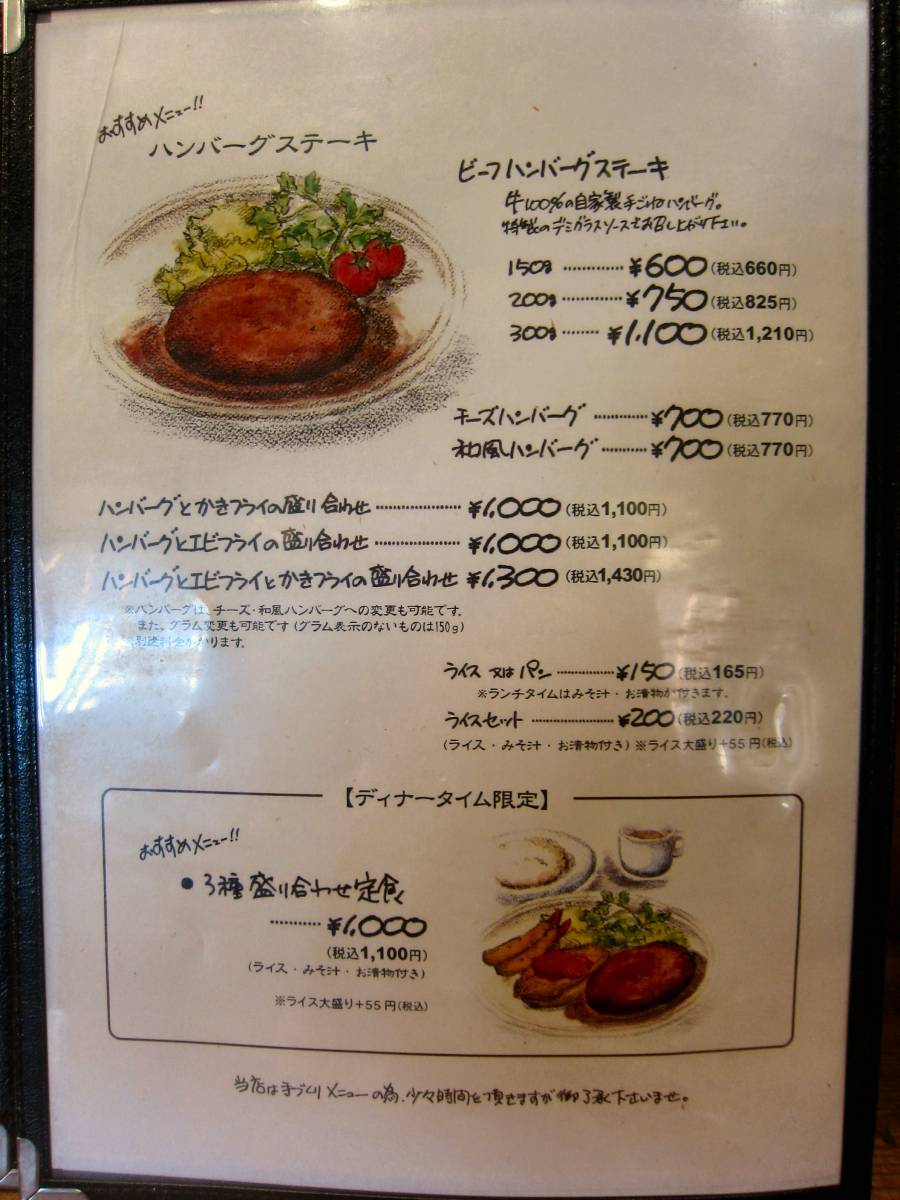 おすすめメニュー!!
ハンバーグステーキ
ビーフハンバーグステーキ
牛100%の自家製手ごねハンバーグ。
特製のデミグラスソースでお召し上がり下さい。
150g ………… ¥600(税込660円)
200g ………… ¥750(税込825円)
300g ……… ¥1,100(税込1,210円)
チーズハンバーグ ………… ¥700(税込770円)
和風ハンバーグ ……… ¥700(税込770円)
ハンバーグとかきフライの盛り合わせ ………………… ¥1,000(税込1,100円)
ハンバーグとエビフライの盛り合わせ ………………… ¥1,000(税込1,100円)
ハンバーグとエビフライとかきフライの盛り合わせ ¥1,300(税込1,430円)
※ハンバーグは、チーズ・和風ハンバーグへの変更も可能です。
また、グラム変更も可能です(グラム表示のないものは150g)
※別途料金かかります。
ライス 又は パン ………… ¥150(税込165円)
※ランチタイムはみそ汁・お漬物が付きます。
ライスセット ……………… ¥200(税込220円)
(ライス・みそ汁・お漬物付き)※ライス大盛り+55円(税込)
【ディナータイム限定】
おすすめメニュー!!
●3種盛り合わせ定食
………… ¥1,000
(税込1,100円)
(ライス・みそ汁・お漬物付き)
※ライス大盛り+55円(税込)
当店は手づくりメニューの為、少々時間を頂きますが御了承下さいませ。